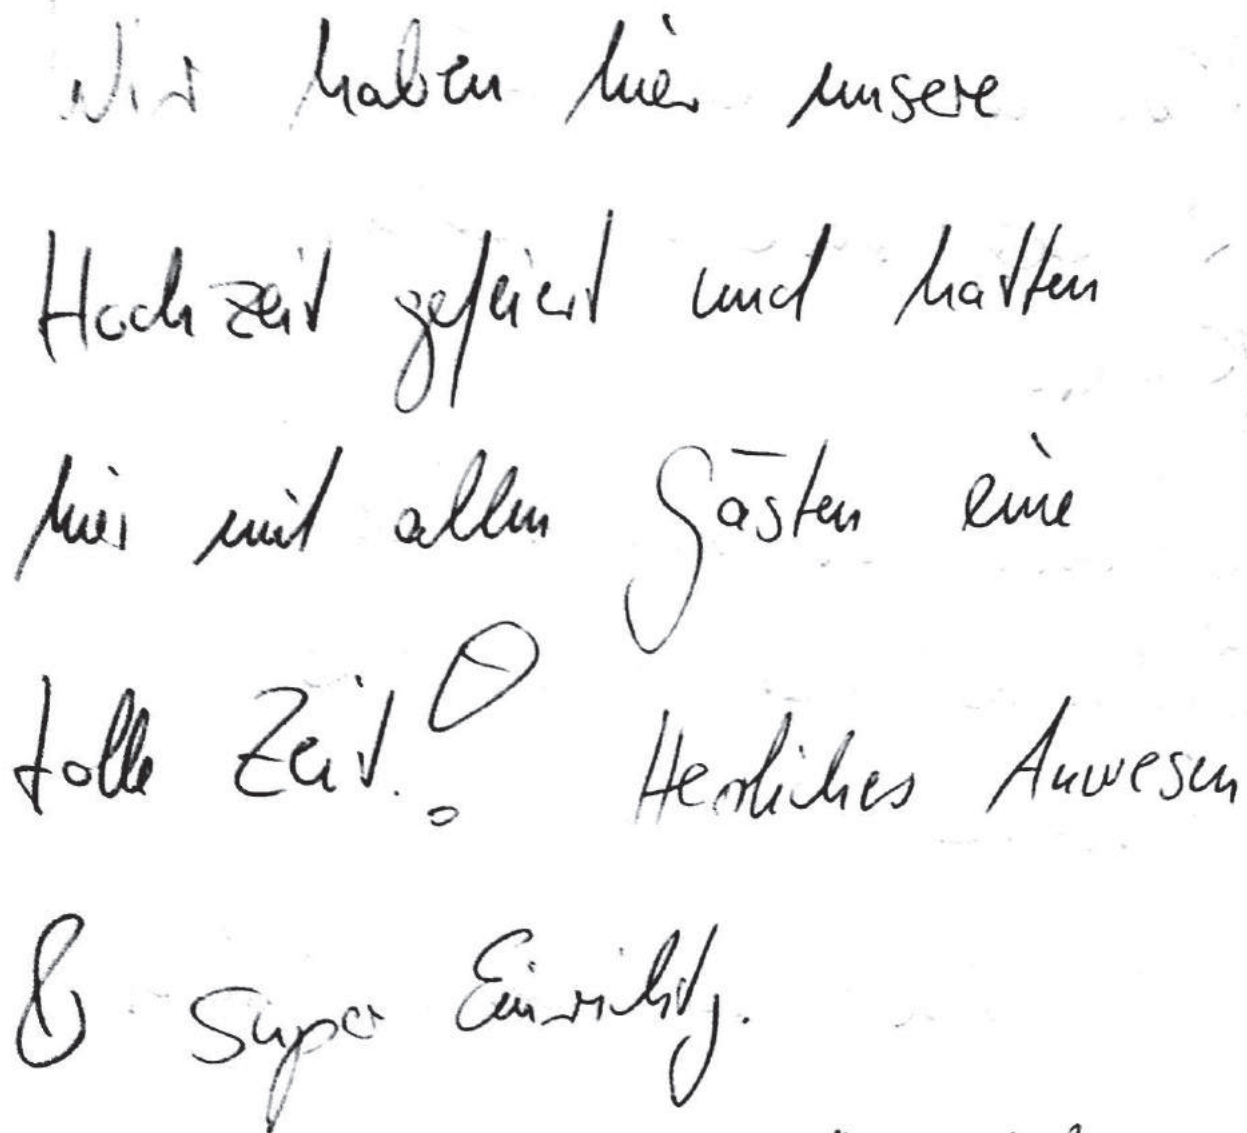 Wir haben hier unsere
Hochzeit gefeiert und hatten
hier mit allen Gästen eine
tolle Zeit.!
Herrliches Anwesen
& super Einrichtg.